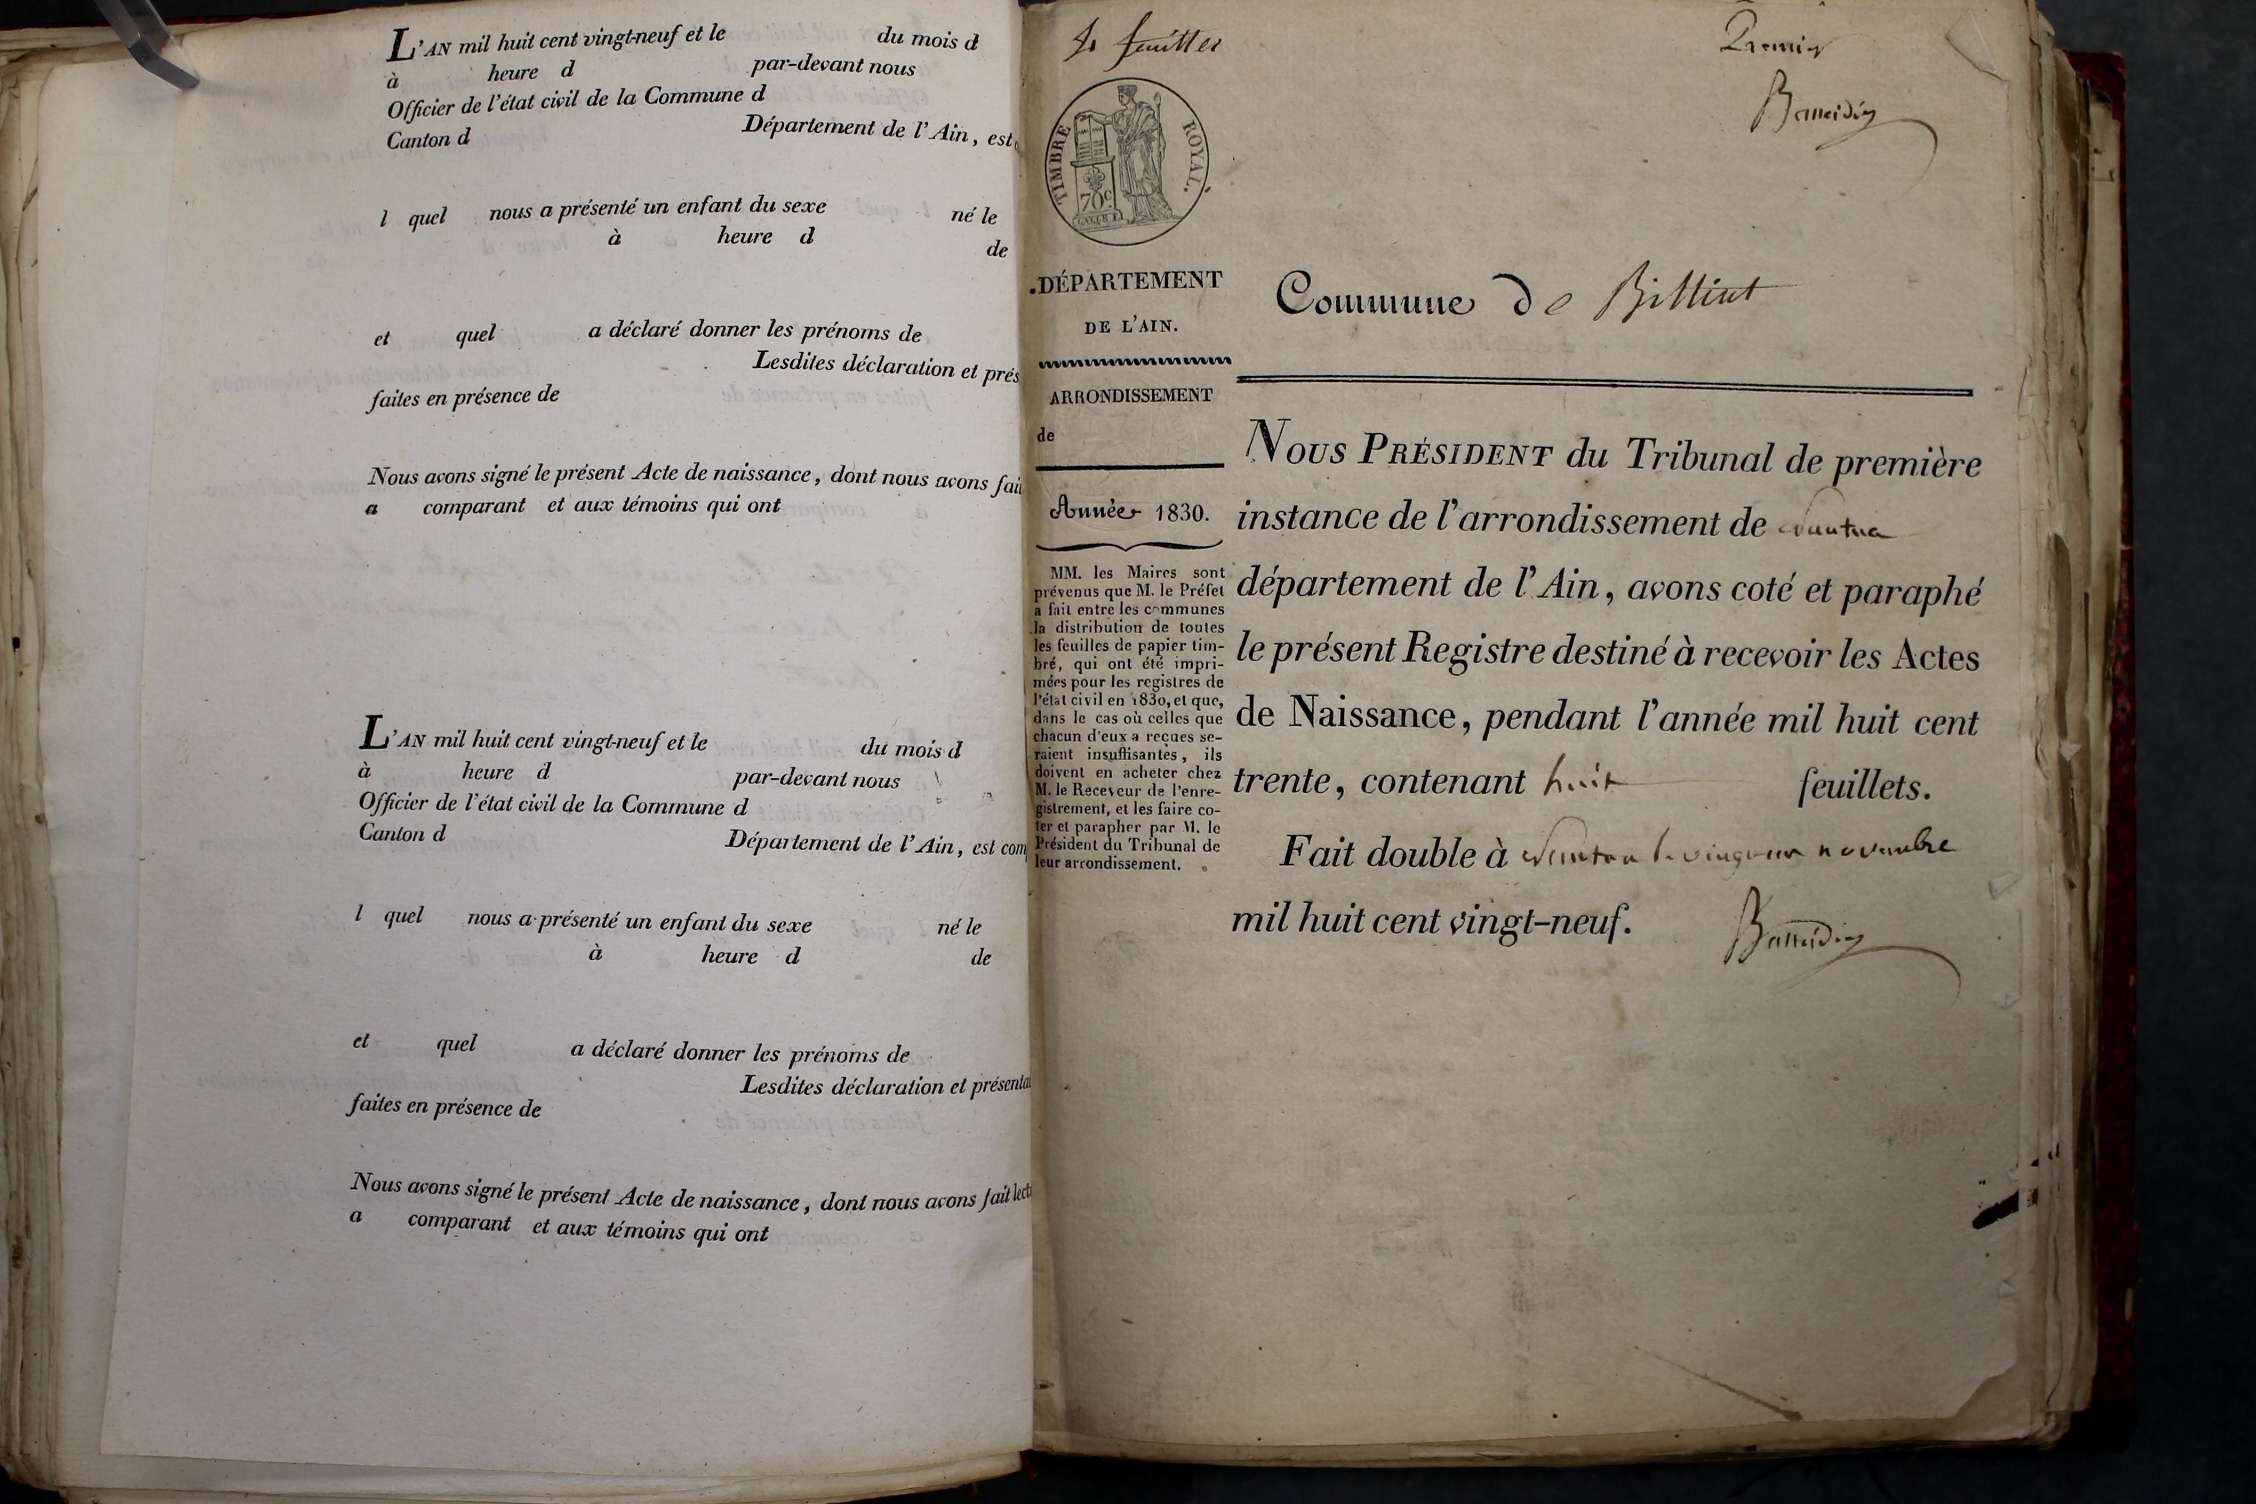 L'AN mil huit cent vingt-neuf et le du mois d
à heure d par-devant nous
Officier de l'état civil de la Commune d
Canton d Département de l'Ain, est
l quel nous a présenté un enfant du sexe né le
à heure d de
et quel a déclaré donner les prénoms de
Lesdites déclaration et prés
faites en présence de
Nous avons signé le présent Acte de naissance, dont nous avons fait
a comparant et aux témoins qui ont
L'AN mil huit cent vingt-neuf et le du mois d
à heure d par-devant nous
Officier de l'état civil de la Commune d
Canton d Département de l'Ain, est com
l quel nous a présenté un enfant du sexe né le
à heure d de
et quel a déclaré donner les prénoms de
Lesdites déclaration et présenta
faites en présence de
Nous avons signé le présent Acte de naissance, dont nous avons fait lect
a comparant et aux témoins qui ont
feuillet
Premier
TIMBRE ROYAL.
70 c.
DÉPARTEMENT
DE L'AIN.
ARRONDISSEMENT
de
Année 1830.
MM. les Maires sont
prévenus que M. le Préfet
a fait entre les communes
la distribution de toutes
les feuilles de papier tim-
bré, qui ont été impri-
mées pour les registres de
l'état civil en 1830, et que,
dans le cas où celles que
chacun d'eux a reçues se-
raient insuffisantes, ils
doivent en acheter chez
M. le Receveur de l'enre-
gistrement, et les faire co-
ter et parapher par M. le
Président du Tribunal de
leur arrondissement.
Commune de Billiat
NOUS PRÉSIDENT du Tribunal de première
instance de l'arrondissement de Nantua
département de l'Ain, avons coté et paraphé
le présent Registre destiné à recevoir les Actes
de Naissance, pendant l'année mil huit cent
trente, contenant huit feuillets.
Fait double à Nantua le novembre
mil huit cent vingt-neuf.